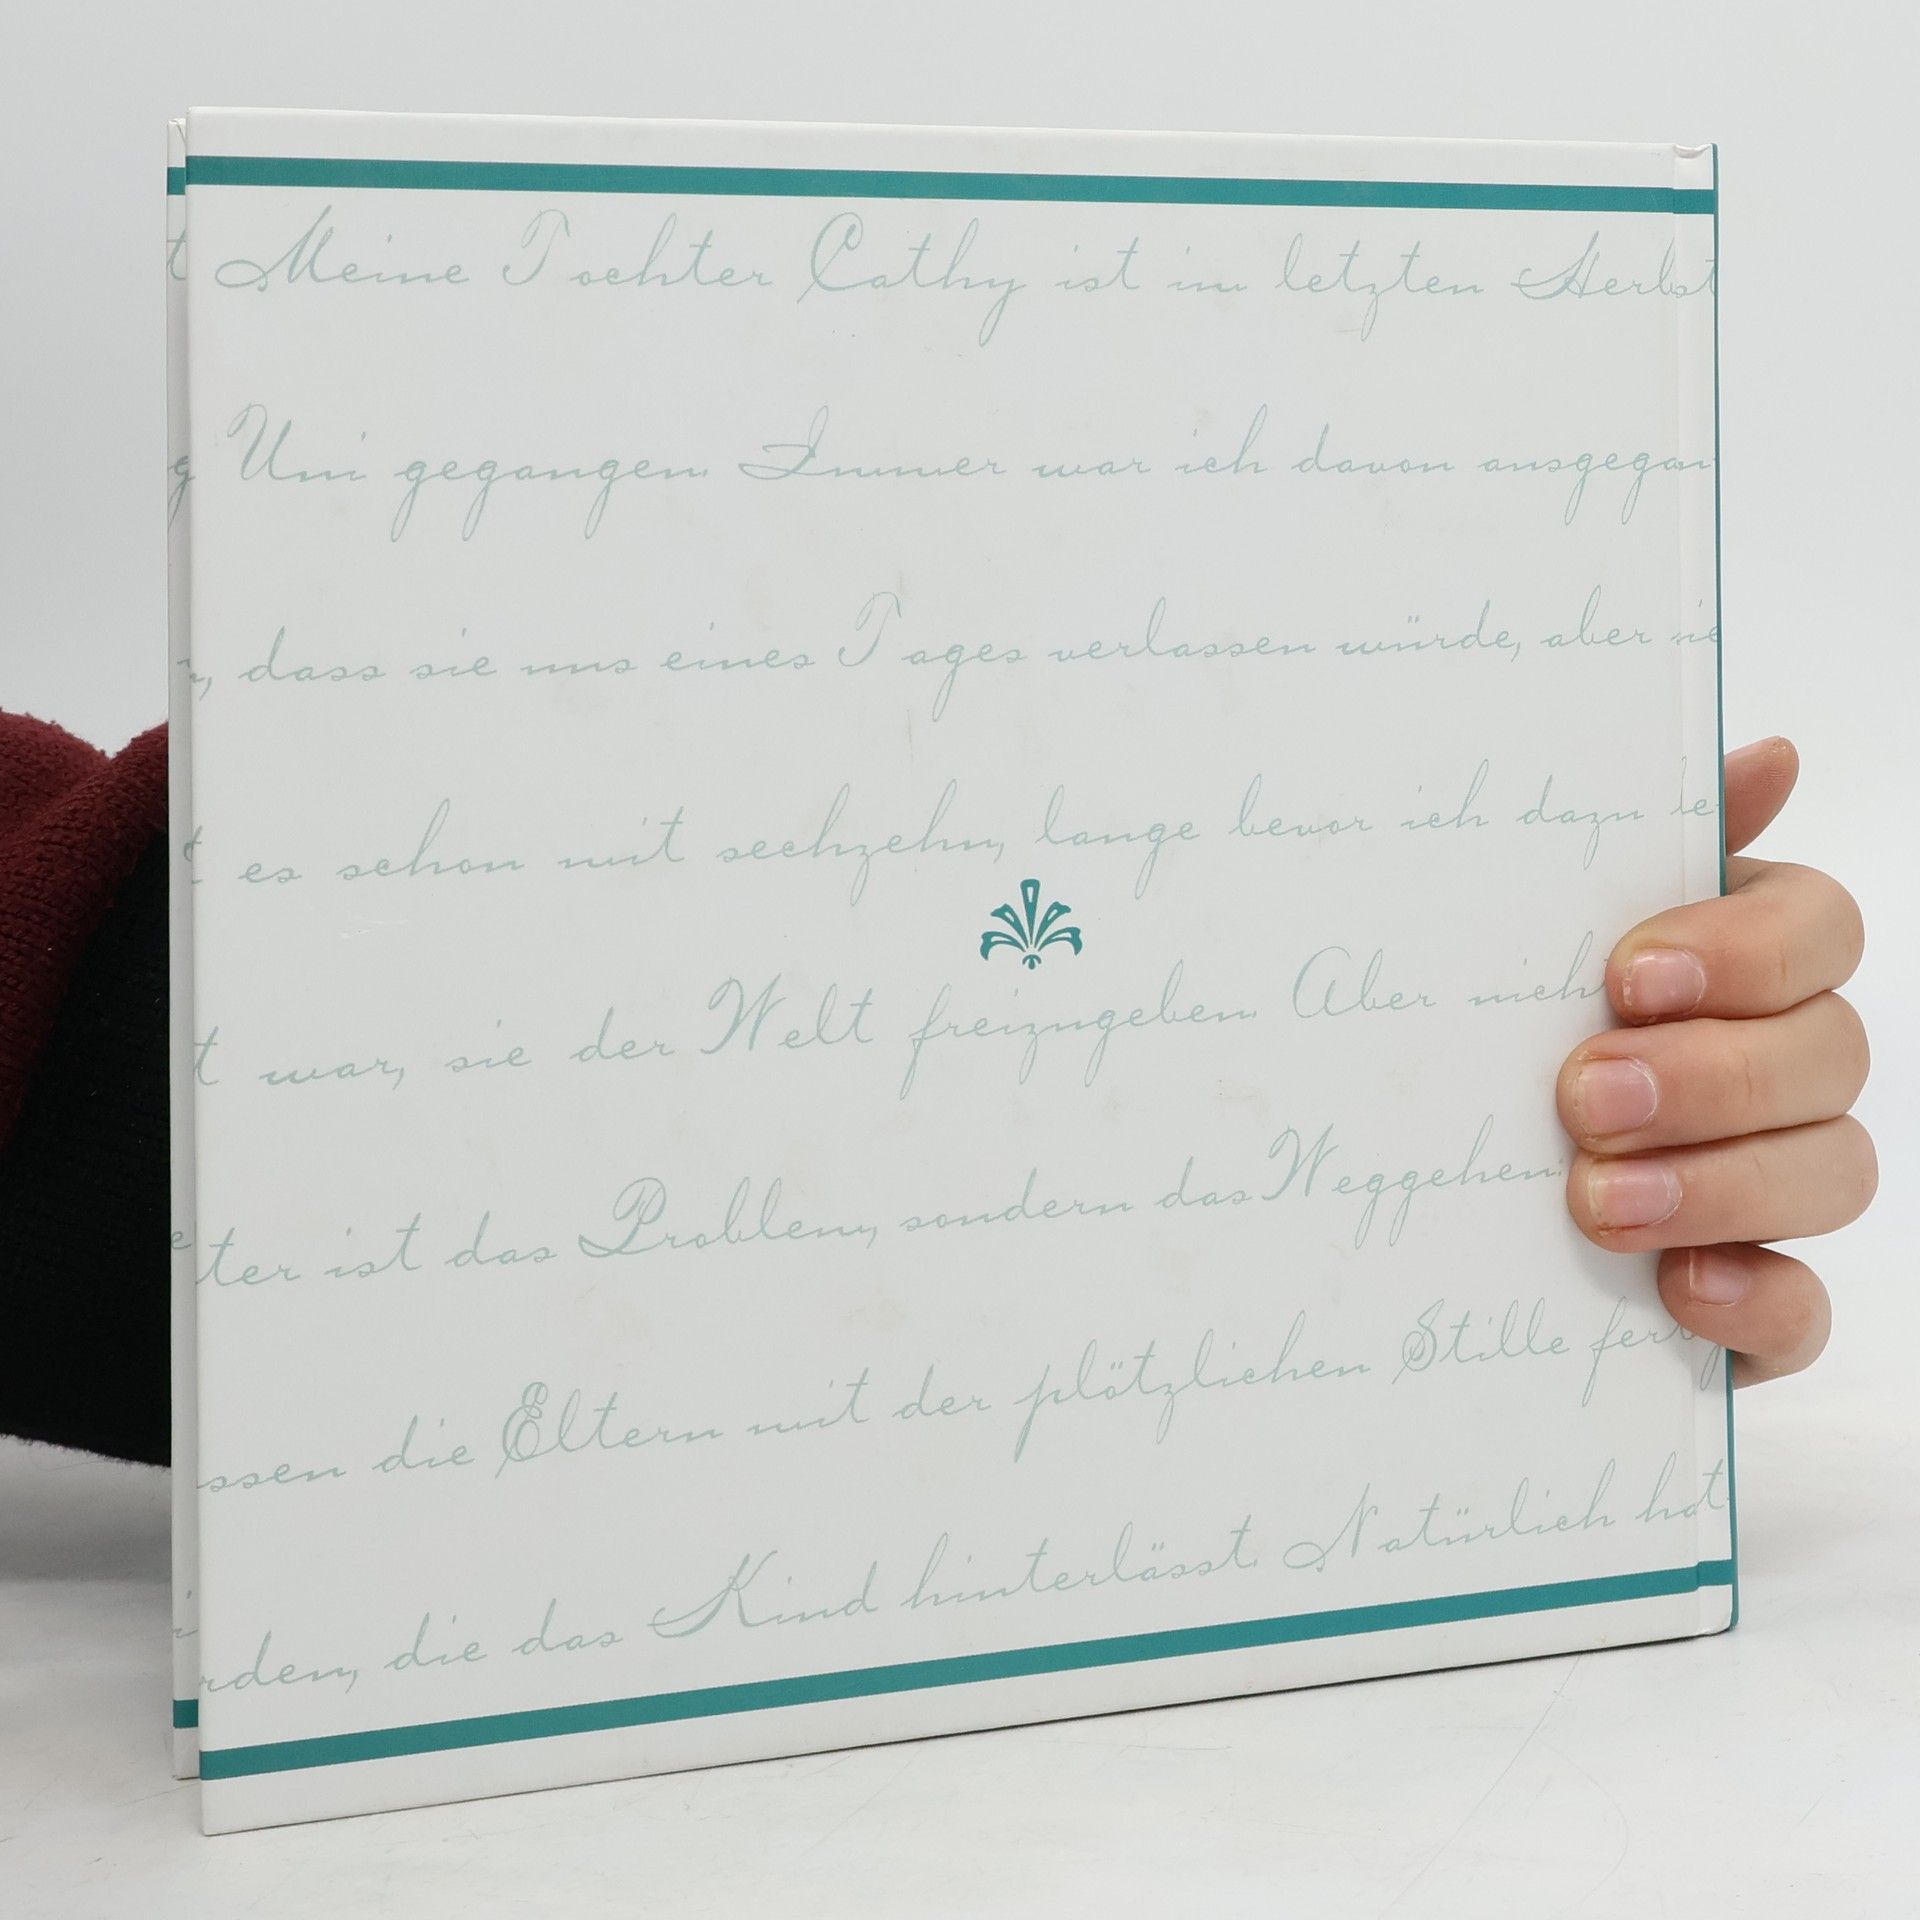 Meine Tochter Cathy ist im letzten Herbst
Uni gegangen. Immer war ich davon ausgegan
, dass sie uns eines Tages verlassen würde, aber sie
t es schon mit sechzehn, lange bevor ich dazu be
t war, sie der Welt freizugeben. Aber nich
ter ist das Problem, sondern das Weggehen:
ssen die Eltern mit der plötzlichen Stille fertig
rden, die das Kind hinterlässt. Natürlich hat